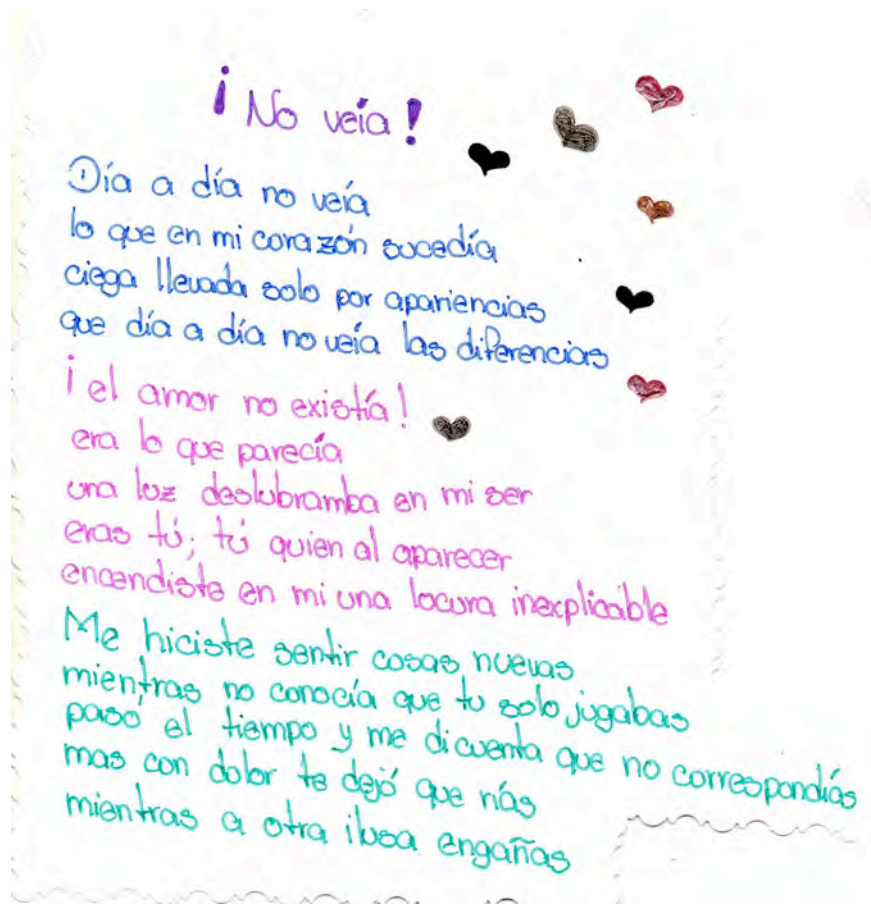 ¡No veía!
Día a día no veía
lo que en mi corazón sucedía
ciega llevada solo por apariencias
que día a día no veía las diferencias
¡el amor no existía!
era lo que parecía
una luz deslubramba en mi ser
eras tú; tú quien al aparecer
encendiste en mi una locura inexplicable
Me hiciste sentir cosas nuevas
mientras no conocía que tu solo jugabas
pasó el tiempo y me di cuenta que no correspondiás
mas con dolor te dejó que riás
mientras a otra ilusa engañas